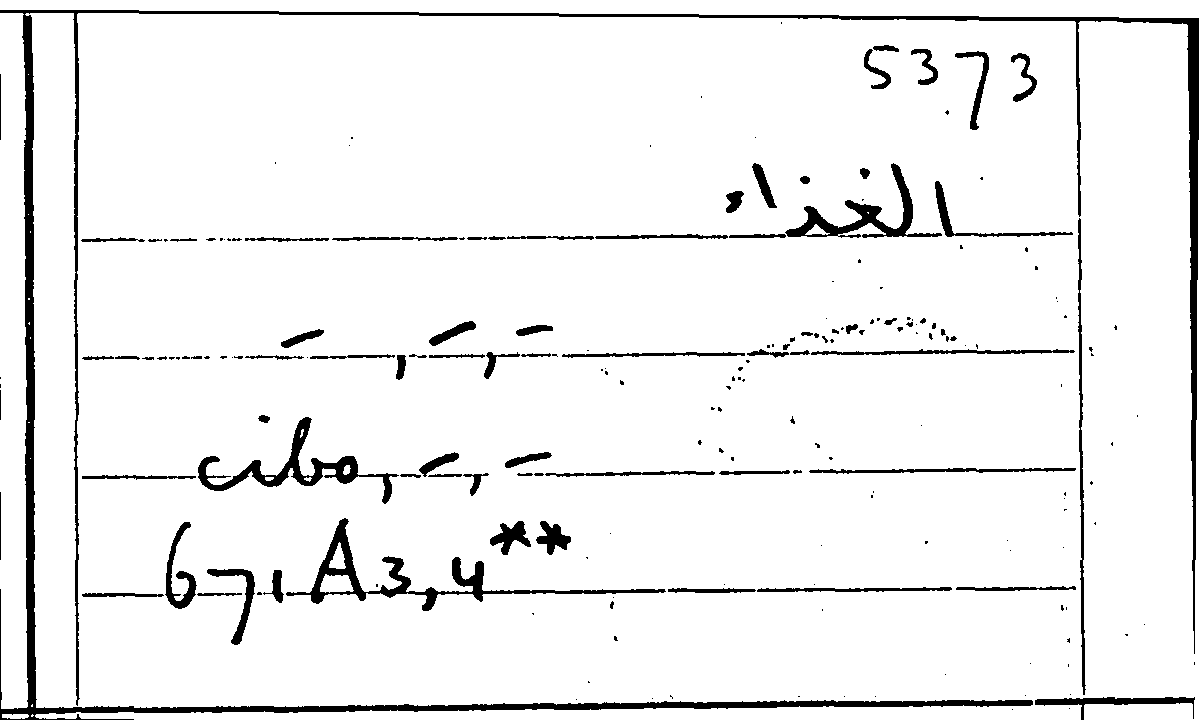 5373
الغذاء
–, –, –
cibo, –, –
671A3,4**